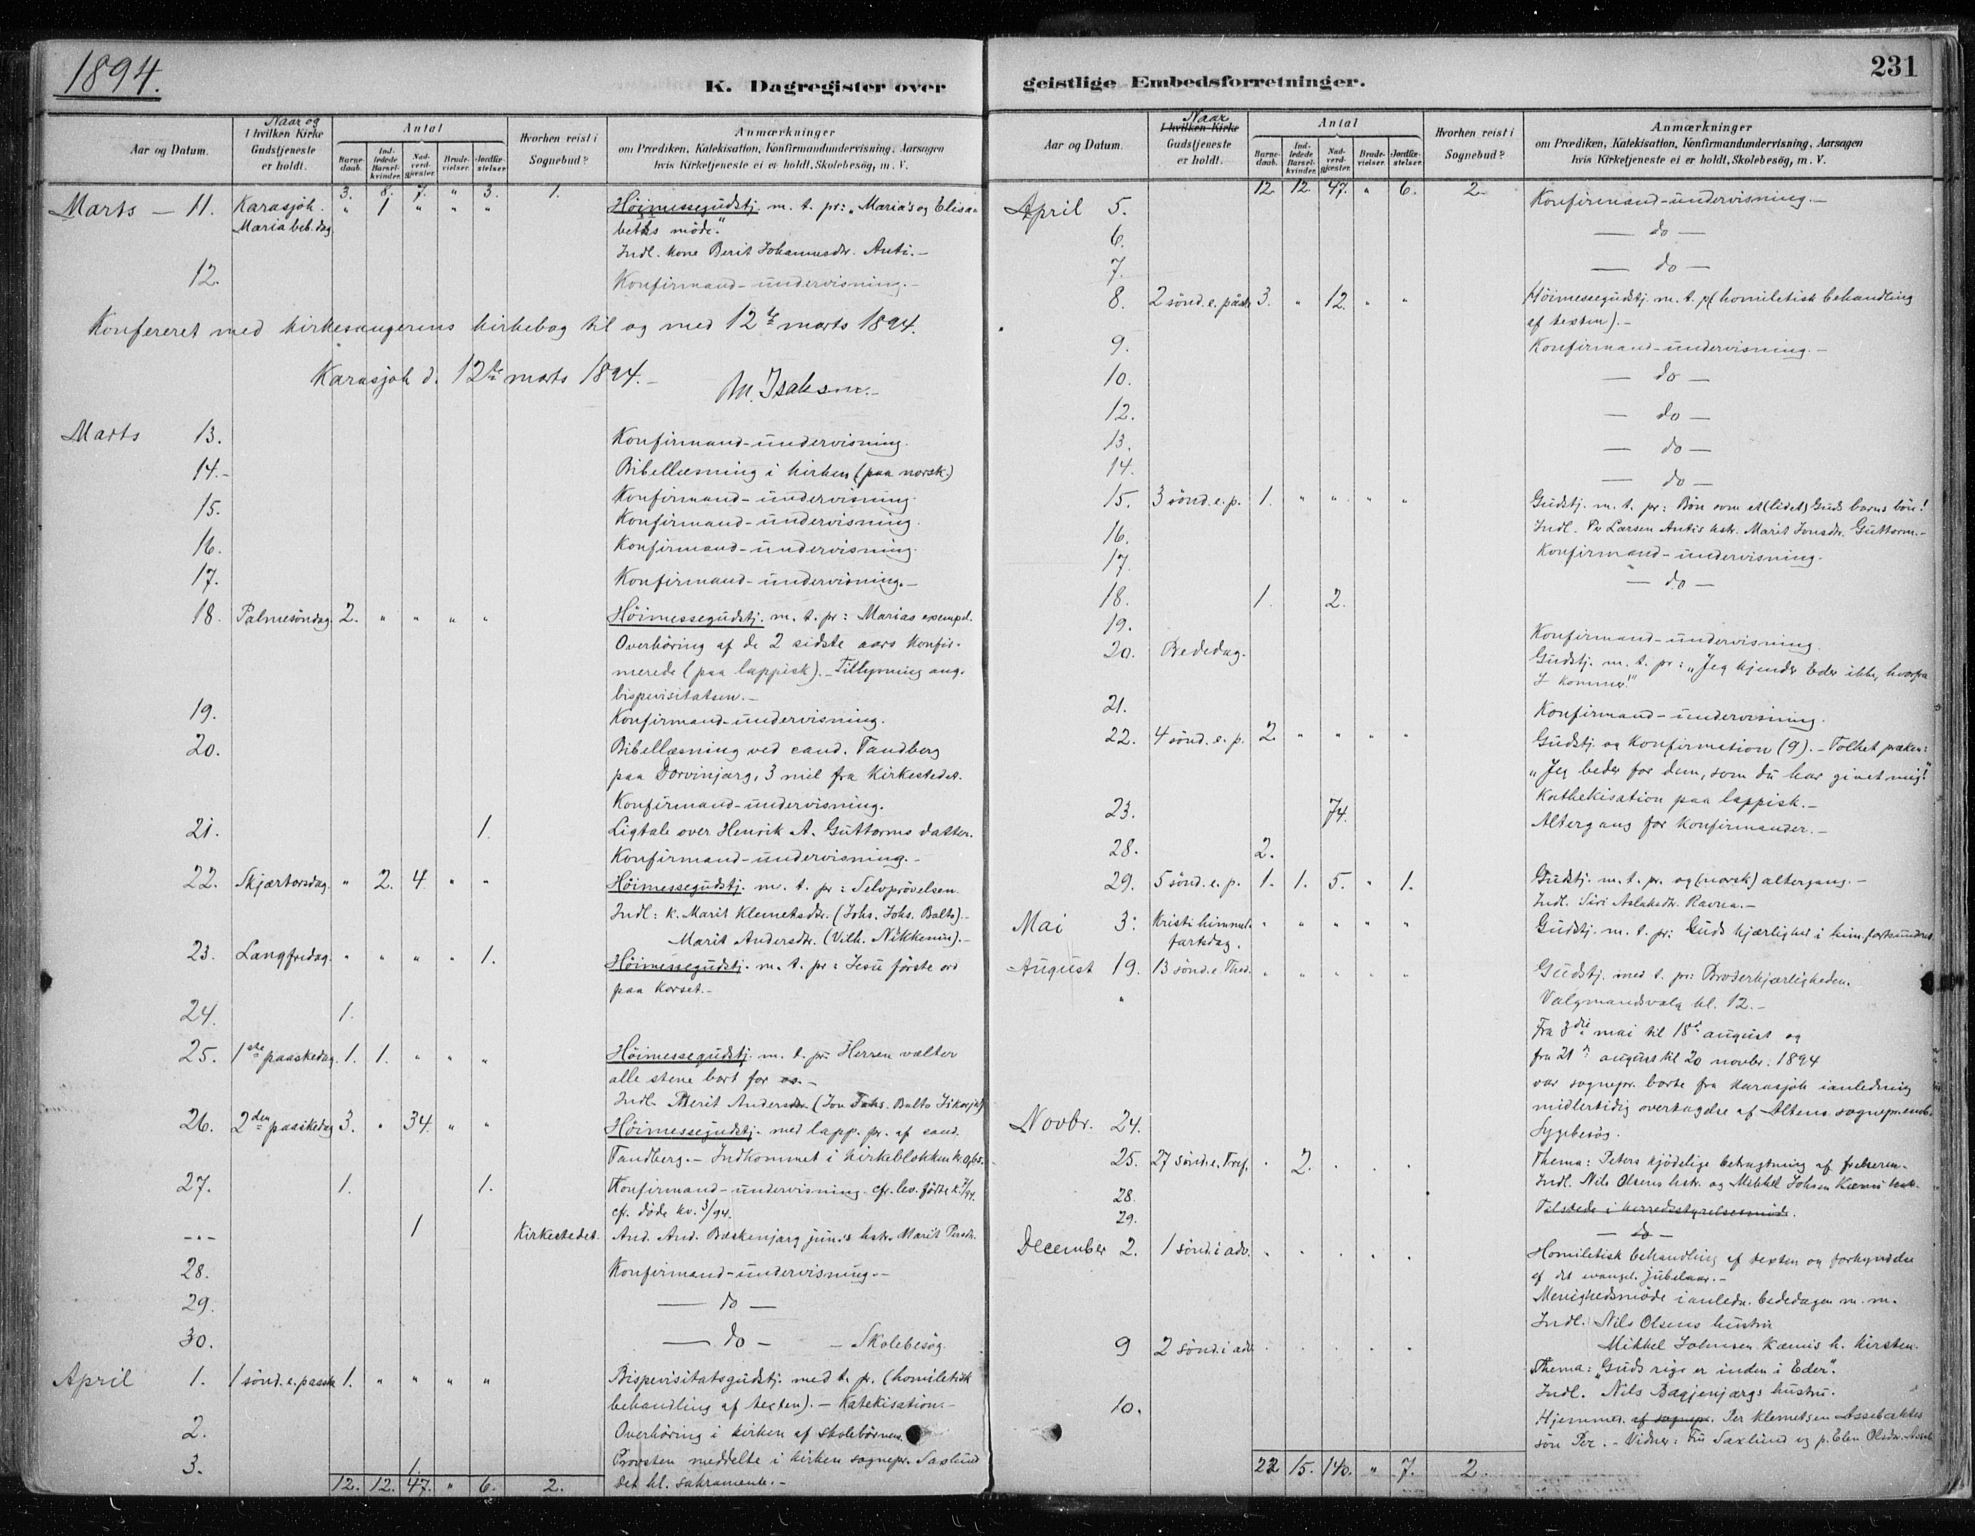 1894.
K. Dagregister over
Aar og Datum.
Naar og
I hvilken Kirke
Gudstjeneste
er holdt.
Antal
Barne-
daab.
Ind-
ledede
Barsel-
kvinder.
Nad-
verd-
gjæster.
Brude-
vielser.
Jordfæ-
stelser.
Hvorhen reist i
Sognebud?
Anmærkninger
om Prædiken, Katekisation, Konfirmandundervisning, Aarsagen
hvis Kirketjeneste ei er holdt, Skolebesøg, m. V.
3. 8. 7. " 3. 1.
Marts — 11. Karasjok. " 1 " " " Höimessegudstj. m. t. pr: "Maria's og Elisa-
Mariæ beb. dag beths möde".
Indl. kone Berit Johannesdr. Anti.—
12. Konfirmand-undervisning.—
Konfereret med kirkesangerens kirkebog til og med 12te marts 1894.
Karasjok d. 12te marts 1894.—
M. Isaksen.—
Marts 13. Konfirmand-undervisning.
14.- Bibellæsning i kirken (paa norsk.)
15. Konfirmand-undervisning.
Konfirmand-undervisning.
16. Konfirmand-undervisning.
17. Konfirmand-undervisning.—
18. Palmesöndag. 2. " " " " Höimessegudstj. m. t. pr: Marias exempel.
Overhöring af de 2 sidste aars konfir-
merede (paa lappisk).—Tillysning ang.
bispevisitatsen.—
19. Konfirmand-undervisning.
20. Bibellæsning ved cand. Tandberg
paa Dorvinjarg, 3 mil fra Kirkestedet.
Konfirmand-undervisning.
21. 1. Ligtale over Henrik A. Guttorms datter.
Konfirmand-undervisning.—
22. Skjærtorsdag. " 2. 4. " " Höimessegudstj. m. t. pr: Selvprövelsen.
Indl: k. Marit Klemetsdr. (Johs. Johs. Balto).—
Marit Andersdr. (Vilh. Nikkenin).—
23. Langfredag. " " " " 1. Höimessegudstj. m. t. pr: Jesu förste ord
paa korset.—
24. 1.
25. 1ste paaskedag. 1. 1. " " " Höimessegudstj. m. t. pr: Herren vælter
alle stene bort for os.—
Indl. Berit Andersdr. (Jon Johs. Balto
26. 2den paaskedag 3. " 34. " " Höimessegudstj. med lapp. pr. af cand.
Tandberg.— Indkommet i kirkeblokken kr. 0,65.
27. 1. 1. Konfirmand-undervisning. cfr. lev. födte
cfr. döde kv. 3/94.
-.- 1 Kirkestedet. And. And. Bæskenjarg jun.s hstr. Marit Persdr.
28. Konfirmand-undervisning.—
29. — do —
30. — do — — Skolebesög.
April 1. 1 sönd. e. paaske 1. " " " " Bispevisitatsgudstj. med t. pr. (homiletisk
behandling af texten).— Katekisation.—
2. Overhöring i kirken af skolebörnene.
3. 1. Provsten meddelte i kirken sognepr. Saxlund
12. 12. 47. " 6. 2. det hl. sakramente.—
geistlige Embedsforretninger.
231
Aar og Datum.
Naar
I hvilken Kirke
Gudstjeneste
er holdt.
Antal
Barne-
daab.
Ind-
ledede
Barsel-
kvinder.
Nad-
verd-
gjæster.
Brude-
vielser.
Jordfæ-
stelser.
Hvorhen reist i
Sognebud?
Anmærkninger
om Prædiken, Katekisation, Konfirmandundervisning, Aarsagen
hvis Kirketjeneste ei er holdt, Skolebesøg, m. V.
12. 12. 47. " 6. 2.
April 5. Konfirmand-undervisning.—
6. — do —
7. — do —
8. 2 sönd. e. påske 3. " 12. " " Höimessegudstj. m. t. p (homiletisk behandling
af texten).—
9. Konfirmand-undervisning.—
10. — do —
12. — do —
13. — do —
14. — do —
15. 3 sönd. e. p. 1. " " " " Gudstj. m. t. pr: Bön som et (lidet) Guds barns bön!
Indl. Per Larsen Antis hstr. Marit Jonsdr. Guttorm.—
16. Konfirmand-undervisning.
17. — do —
18. 1. 2.
19. Konfirmand-undervisning.
20. Bededag. Gudstj. m. t. pr: "Jeg kjender Eder ikke, hvorfra
I kommer!"
21. Konfirmand-undervisning.
22. 4 sönd. e. p. 2 " " " " Gudstj. og Konfirmation (9).— Tolket præken:
"Jeg beder for dem, som du har givet mig!"
Kathekisation paa lappisk.—
23. 74. Altergang for konfirmander.—
28. 2.
29. 5 sönd. e. p. 1. 1. 5. " 1. Gudstj. m. t. pr. og (norsk) altergang.—
Indl. Siri Aslaksdr. Ravna.—
Mai 3. Kristi himmel- " " " " " Gudstj. m. t. pr: Guds kjærlighed i
fartsdag.
August 19. 13 sönd. e. Tred. " " " " " Gudstj. med t. pr: Broderkjærligheden.
" Valgmandsvalg kl. 12.—
Fra 3die mai til 18de august og
fra 21de august til 20 novbr. 1894
var sognepr. borte fra Karasjok i anledning
midlertidig overtagelse af Altens sognepr.emb.
Novbr. 24. Sygebesög.
25. 27 sönd. e. Tref. . 2. . . . Thema: Peters kjödelige betragtning af frelseren.
Indl. Nils Olsens hstr. og Mikkel Johsen Kæmis hstr.
28. Tilstede i herredsstyrelsesmöde.
29. — do —
December 2. 1 sönd. i adv. . . . . . Homiletisk behandling af texten og forkyndelse
af det evangel. jubelaar.—
Menighedsmöde i anledn. bededagen m. m.
Indl. Nils Olsens hustru
Mikkel Johnsen Kæmis h. Kirsten.
9 2 sönd. i adv. . . . . . Thema: "Guds rige er inden i Eder".
Indl. Nils Bagjenjargs hustru.
10. Hjemmed. af sognepr. Per Klemetsen Assebaktes
sön Per.— Vidner: Fru Saxlund og p. Elen Olsdr.
22 15. 140. " 7. 2.